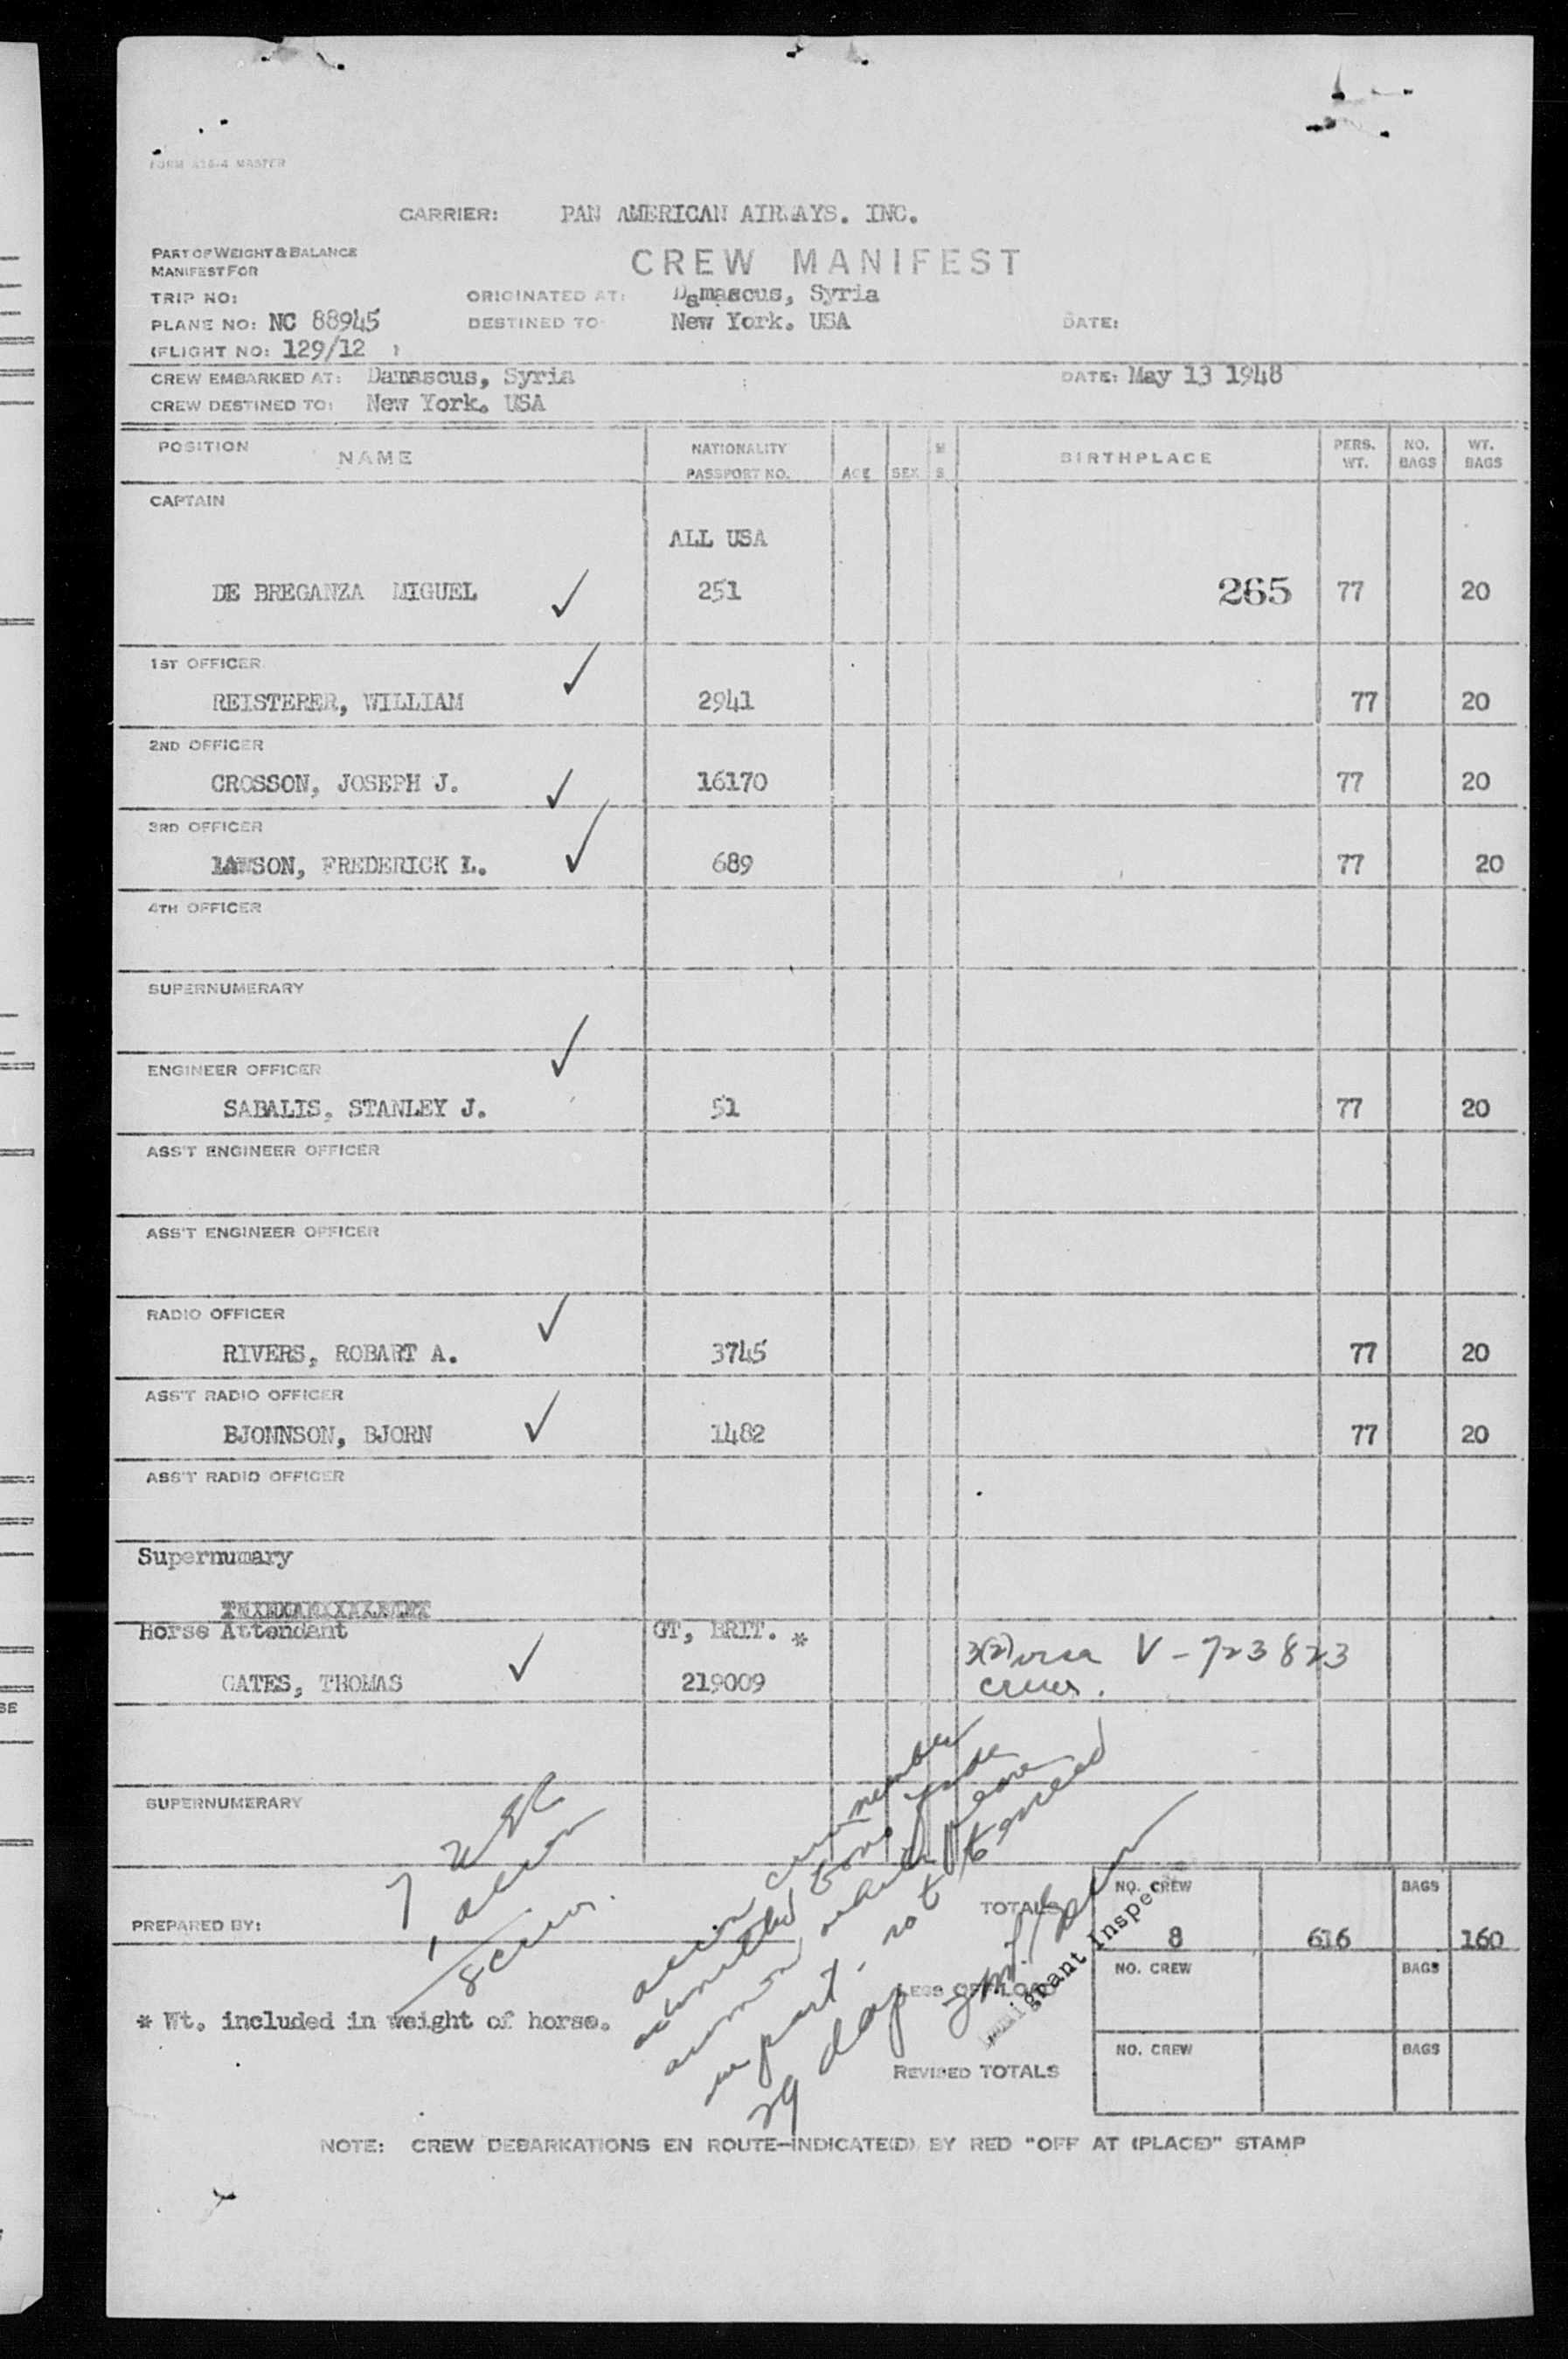 FORM 416-4 MASTER
CARRIER: PAN AMERICAN AIRWAYS. INC.
PART OF WEIGHT & BALANCE
MANIFEST FOR
CREW MANIFEST
TRIP NO: ORIGINATED AT: Damascus, Syria
PLANE NO: NC 88945 DESTINED TO: New York. USA DATE:
(FLIGHT NO: 129/12 )
CREW EMBARKED AT: Damascus, Syria DATE: May 13 1948
CREW DESTINED TO: New York. USA
POSITION NAME NATIONALITY PASSPORT NO. AGE SEX M S BIRTHPLACE PERS. WT. NO. BAGS WT. BAGS
CAPTAIN
ALL USA
DE BREGANZA MIGUEL ✓ 251 265 77 20
1ST OFFICER
REISTERER, WILLIAM ✓ 2941 77 20
2ND OFFICER
CROSSON, JOSEPH J. ✓ 16170 77 20
3RD OFFICER
LAWSON, FREDERICK L. ✓ 689 77 20
4TH OFFICER
SUPERNUMERARY
ENGINEER OFFICER ✓
SABALIS, STANLEY J. 51 77 20
ASS'T ENGINEER OFFICER
ASS'T ENGINEER OFFICER
RADIO OFFICER ✓
RIVERS, ROBART A. 3745 77 20
ASS'T RADIO OFFICER
BJONNSON, BJORN ✓ 1482 77 20
ASS'T RADIO OFFICER
Supernumary
Horse Attendant GT, BRIT. *
GATES, THOMAS ✓ 219009
3(2) visa V-723823
crew.
SUPERNUMERARY
7 USC
1 alien
8 crew.
alien crew member
admitted
in port - not to exceed
29 days
Immigrant Inspec
PREPARED BY:
TOTALS NO. CREW 8 616 BAGS 160
LESS OFFLOAD NO. CREW BAGS
REVISED TOTALS NO. CREW BAGS
* Wt. included in weight of horse.
NOTE: CREW DEBARKATIONS EN ROUTE—INDICATE(D) BY RED "OFF AT (PLACE)" STAMP